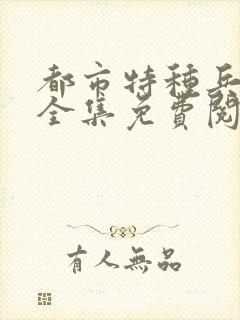 都市特种兵
全集免費閱
有人無品